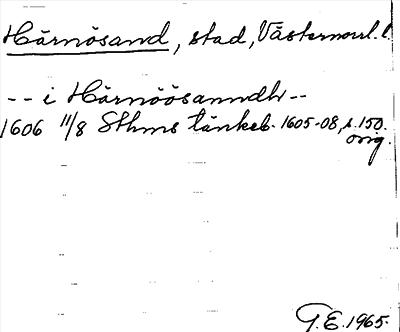 Härnösand, stad, Västernorrl. l.
-- i Härnöösanndh --
1606 11/8 Sthms tänkeb. 1605-08, s. 150.
orig.
T.E. 1965.